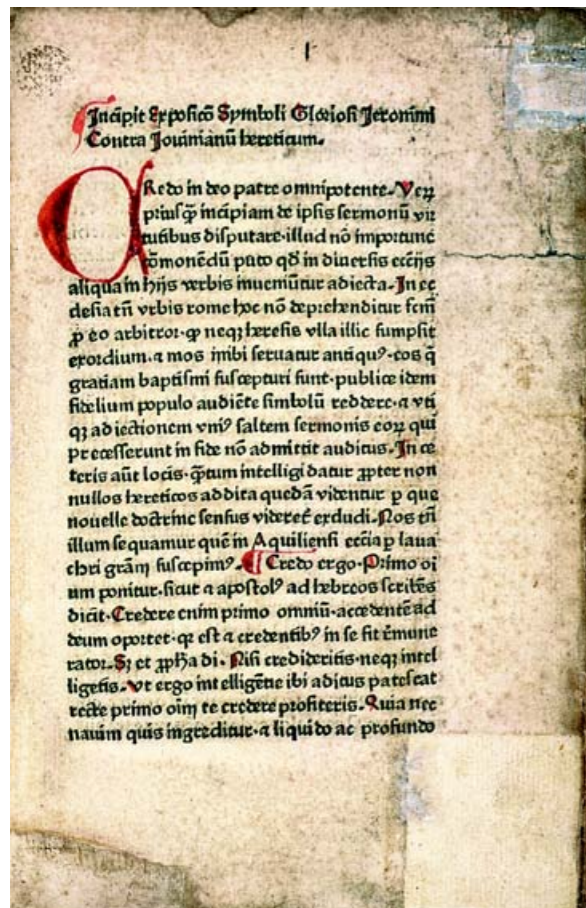 I
Incipit Exposicō Symboli Gloriosi Jeronimi
Contra Jovinianū hereticum.
CRedo in deo patre omnipotente. Verꝝ
priusꝙ̄ incipiam de ipsis sermonū vir
tutibus disputare. illud nō importune
cōmonendū puto qđ in diversis eccīijs
aliqua in hijs verbis inueniūtur adiecta. In ec
clesia tn̄ vrbis rome hoc nō deprehenditur fcm̄
ꝓ eo arbitror. ꝙ neqꝫ heresis vlla illic sumpsit
exordium. ⁊ mos inibi seruatur antiquꝰ. eos q̄
gratiam baptismi suscepturi sunt. publice idem
fidelium populo audiēte simbolū reddere. ⁊ vti
qꝫ adiectionem vniꝰ saltem sermonis eoꝝ qui
precesserunt in fide nō admittit auditus. In ce
teris aūt locis. ꝙ̄tum intelligi datur ꝓpter non
nullos hereticos addita quedā videntur ꝑ que
nouelle doctrine sensus videret᷑ excludi. Nos tn̄
illum sequamur quē in Aquiliensi eccīa ꝑ laua
chri grām suscepimꝰ. ¶ Credo ergo. Primo oī
um ponitur. sicut ⁊ apostolꝰ ad hebreos scribēs
dicit. Credere enim primo omniū. accedentē ad
deum oportet. qꝛ est ⁊ credentibꝰ in se fit rēmune
rator. Sꝫ et ꝓpħa di. Nisi credideritis. neqꝫ intel
ligetis. Vt ergo intelligētie ibi aditus patescat
recte primo oīm te credere profiteris. Quia nec
nauim quis ingreditur. ⁊ liquido ac profundo